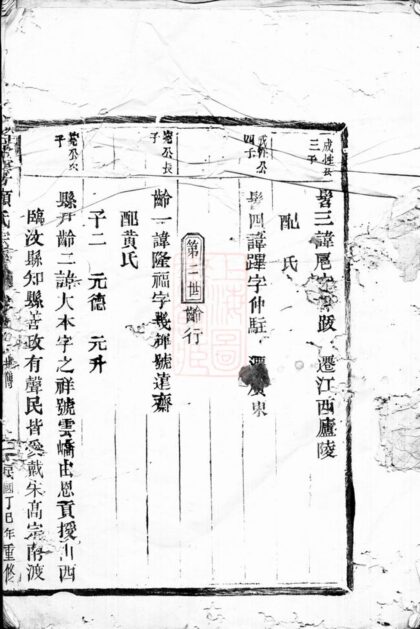 咸性公
三子
髫三諱 遷江西廬陵
配 氏
四子
髫四諱躍字仲駐 遷廣東
第二世 齡行
公長
子
齡一諱隆福字幾禪號達齋
配黃氏
子二 元德 元升
公次
子
縣尹齡二諱大本字之祥號雲嶠由恩貢授山西
臨汝縣知縣善政有聲民皆愛戴宋高宗南渡
顏氏
民國丁巳年重修